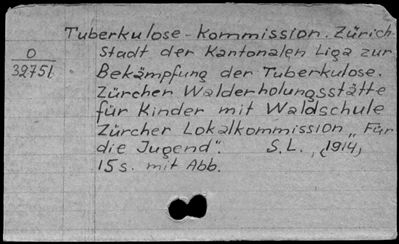 Tuberkulose-Kommission. Zürich-
Stadt der Kantonalen Liga zur
O
32751
Bekämpfung der Tuberkulose.
Zürcher Walderholungsstätte
für Kinder mit Waldschule
Zürcher Lokalkommission „Für
die Jugend". S.L., (1914)
15 s. mit Abb.